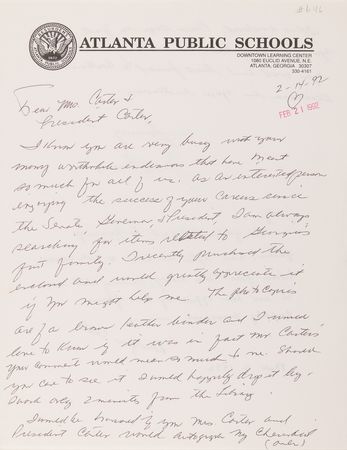 #6-46
ATLANTA PUBLIC SCHOOLS
DOWNTOWN LEARNING CENTER
1080 EUCLID AVENUE, N.E.
ATLANTA, GEORGIA 30307
330-4161
2-14-92
FEB 21 1992
Dear Mrs. Carter &
President Carter,
I know you are very busy with your
many worthwhile endeavors that have meant
so much for all of us. As an interested person
enjoying the success of your careers since
the Senate, Governor, & President, I am always
searching for items related to Georgia's
first family. I recently purchased the
enclosed and would greatly appreciate it
if you might help me. The photocopies
are of a brown leather binder and I would
love to know if it was in fact Mr Carter's
your comment would mean so much to me. Should
you care to see it I would happily drop it by.
I work only 2 minutes from the Library.
I would be honored if you Mrs. Carter and
President Carter would autograph my cherished
(over)